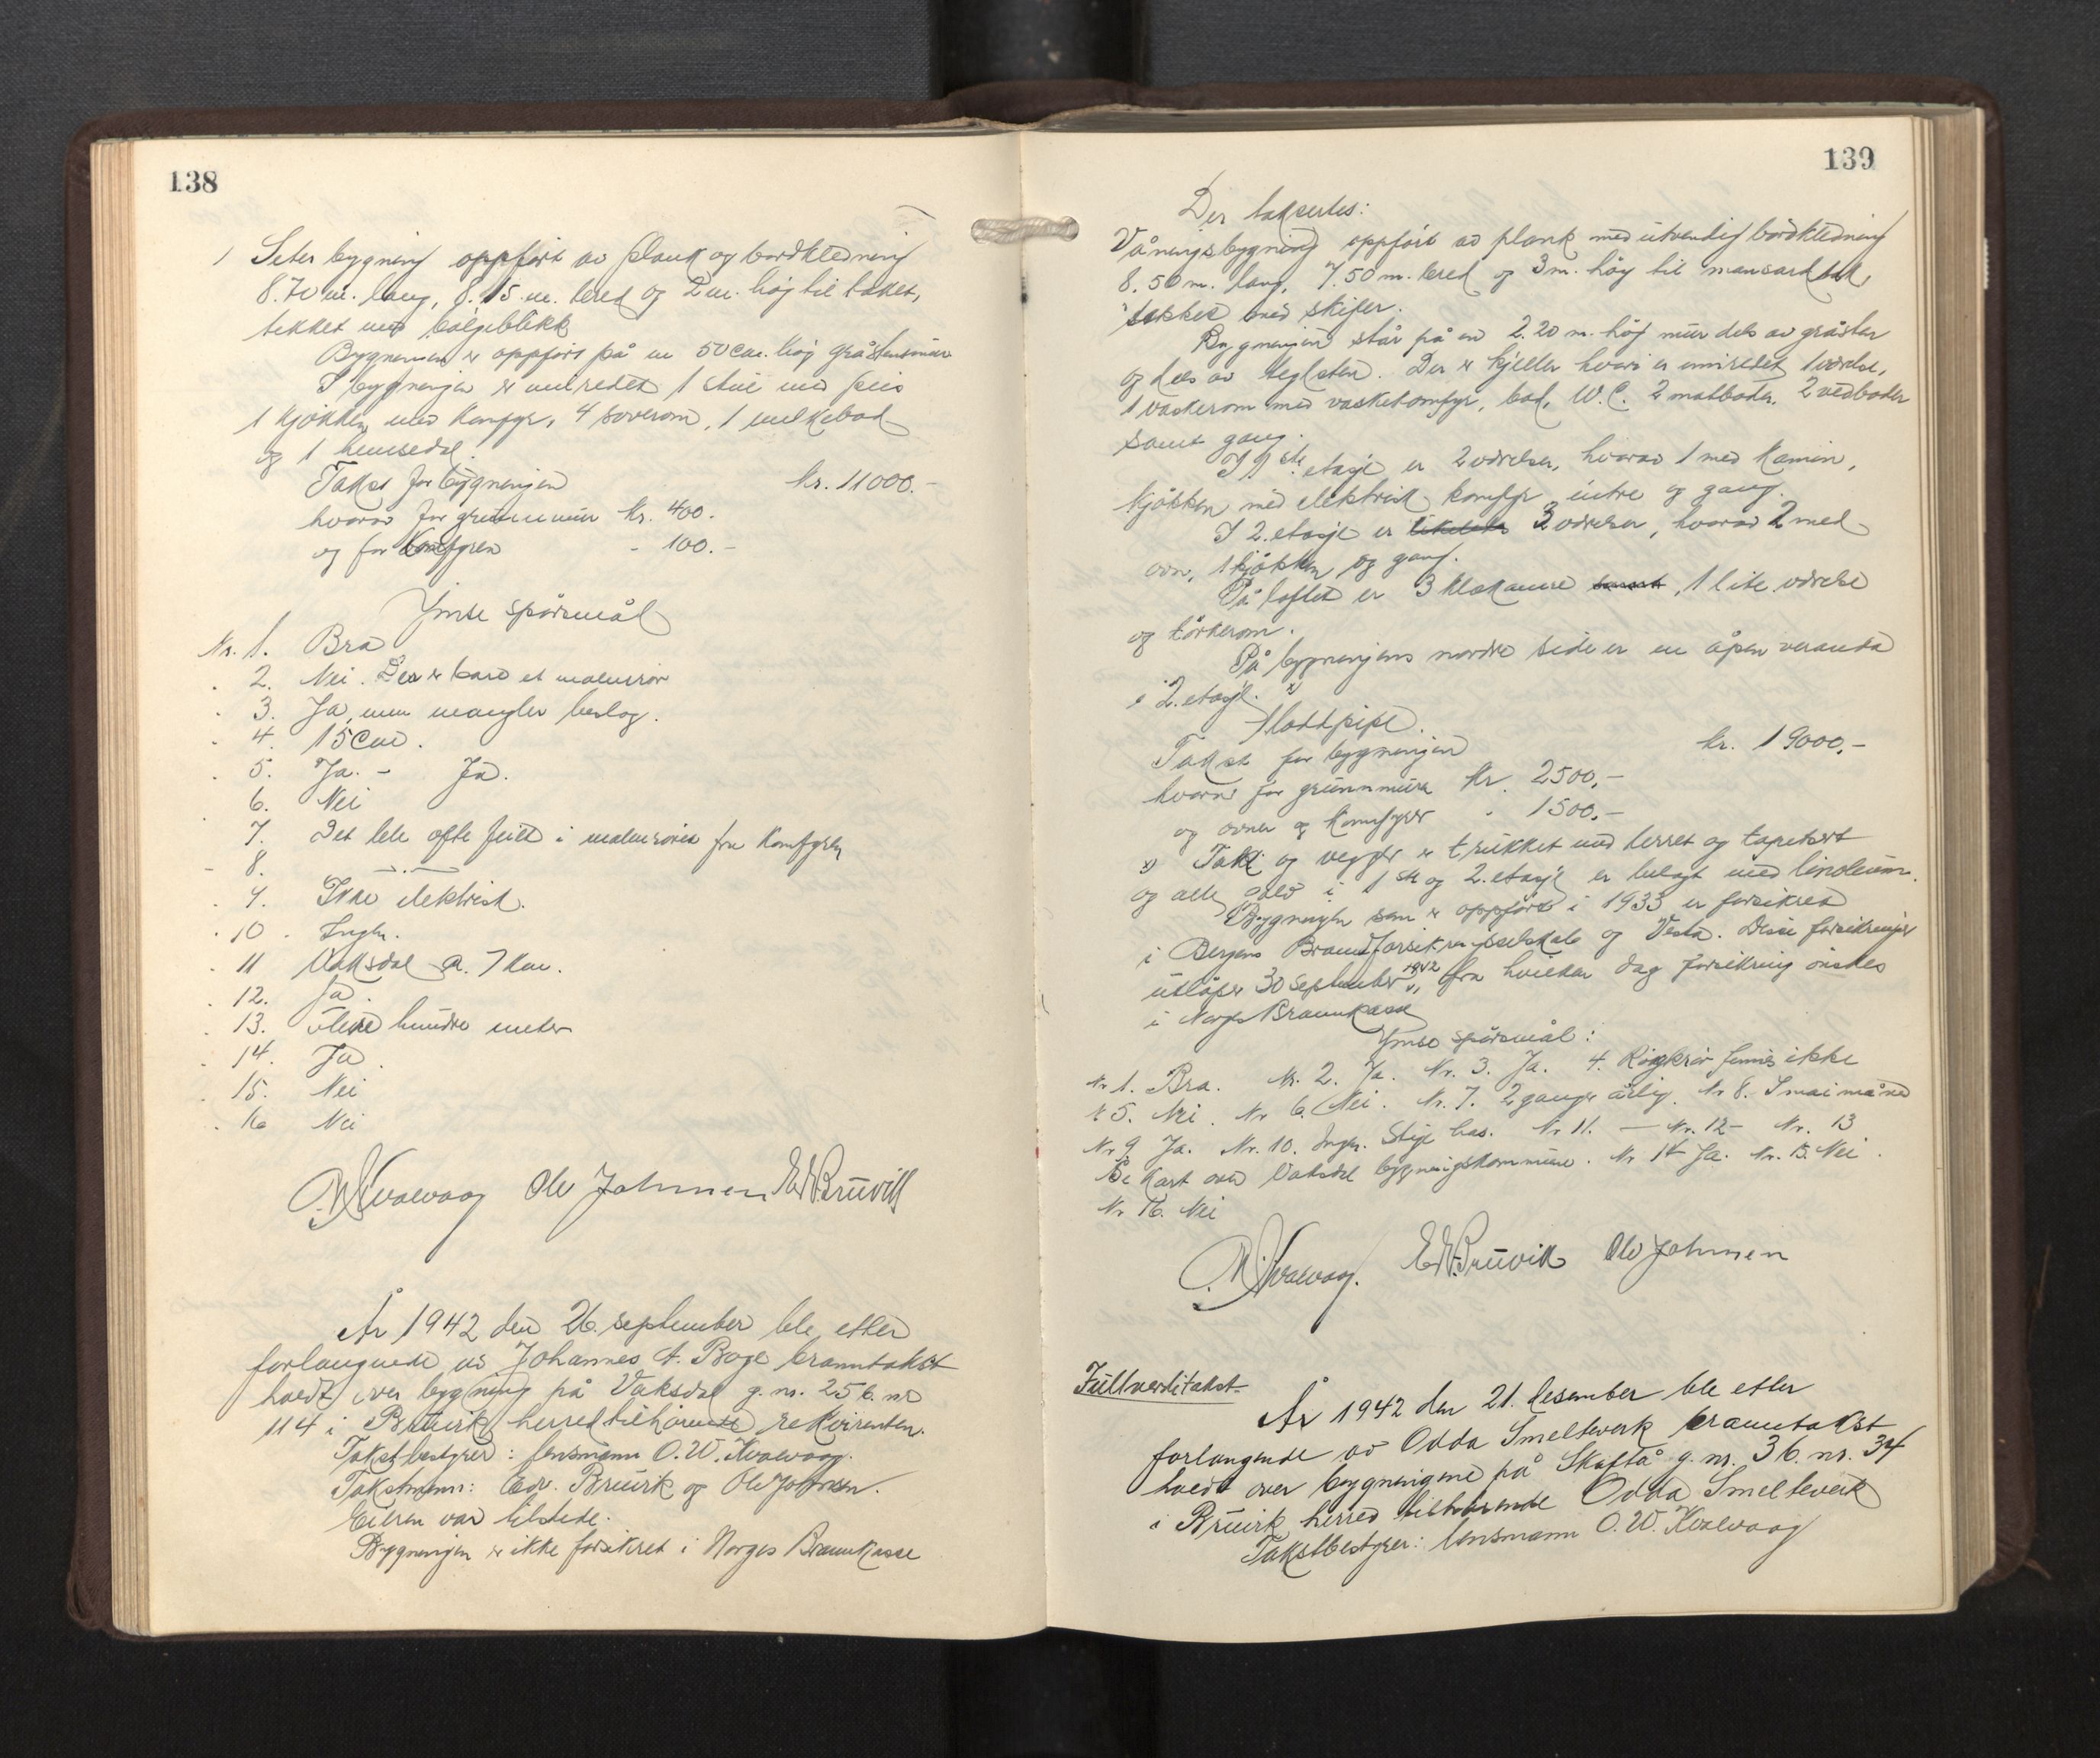 138
1 Seterbygning oppført av plank og bordkledning
8.70 m. lang, 8.15 m. bred og 2 m. høg til taket,
tekket med bølgeblikk
Bygningen er oppført på en 50 cm. høg gråstensmur
I bygningen er innredet 1 stue med peis
1 kjøkken med komfyr, 4 soverom, 1 melkebod
og 1 hemsedal.
Takst for bygningen kr. 11000.-
hvorav for grunnmur kr. 400.
og for komfyren - 100.-
Ymse spørsmål
Nr. 1. Bra
" 2. Nei. Der er bare et malmrør
" 3. Ja, men mangler beslag.
" 4. 15 cm.
" 5. Ja. - Ja.
6. Nei
7. Det ble ofte feiet i malmrøret fra komfyren
" 8. —"—
" 9. Ikke elektrisk.
" 10. Ingen.
" 11 Vaksdal ca. 7 km.
" 12. Ja.
" 13. Flere hundre meter
" 14. Ja.
" 15. Nei
" 16 Nei
O. W. Kvalvaag Ole Johnsen Edv. Bruvik
År 1942 den 26. september ble etter
forlangende av Johannes A. Boge branntakst
holdt over bygning på Vaksdal g.nr. 25 b.nr
114 i Bruvik herred tilhørende rekvirenten.
Takstbestyrer: lensmann O. W. Kvalvaag.
Takstmenn: Edv. Bruvik og Ole Johnsen.
Eieren var tilstede.
Bygningen er ikke forsikret i Norges Brannkasse
139
Der takseres:
Våningsbygning oppført av plank med utvendig bordkledning
8.50 m. lang, 7.50 m. bred og 3 m. høg til mansardtak,
tekket med skifer.
Bygningen står på en 2.20 m. høg mur dels av gråsten
og dels av teglsten. Der er kjeller hvori er innredet 1 værelse,
1 vaskerom med vaskekomfyr, bad, W.C. 2 matboder, 2 vedboder
samt gang.
I 1ste etasje er 2 værelser, hvorav 1 med kamin,
kjøkken med elektrisk komfyr entre og gang.
I 2. etasje er likeledes 3 værelser, hvorav 2 med
ovn, 1 kjøkken og gang.
På loftet er 3 klekamre samt, 1 lite værelse
og tørkerom.
På bygningens nordre side er en åpen veranda
i 2. etasje. x)
1 loddpipe.
Takst for bygningen kr. 19000,-
hvorav for grunnmuren kr. 2500,-
og ovner og komfyrer " 1500,-
x) Tak og vegger er trukket med lerret og tapetsert
og alle golv i 1ste og 2. etasje er belagt med linoleum.
Bygningen som er oppført i 1933 er forsikret
i Bergens Brandforsikringsselskab og Vesta. Disse forsikringer
utløper 30 september 1942, fra hvilken dag forsikring ønskes
i Norges Brannkasse
Ymse spørsmål:
Nr 1. Bra. Nr. 2. Ja. Nr. 3. Ja. 4. Røykrør finnes ikke
Nr 5. Nei. Nr 6. Nei. Nr. 7. 2 ganger årlig. Nr 8. I mai måned
Nr 9 Ja. Nr. 10. Ingen. Stige has. Nr 11. — Nr. 12 - Nr. 13
Se kart over Vaksdal bygningskommune. Nr 14 Ja. Nr. 15. Nei.
Nr 16. Nei
O. W. Kvalvaag. Edv. Bruvik Ole Johnsen
Fullverditakst
År 1942 den 21. desember ble etter
forlangende av Odda Smelteverk branntakst
holdt over bygningene på Skaftå g.nr. 3 b.nr. 34
i Bruvik herred tilhørende Odda Smelteverk
Takstbestyrer: lensmann O. W. Kvalvaag